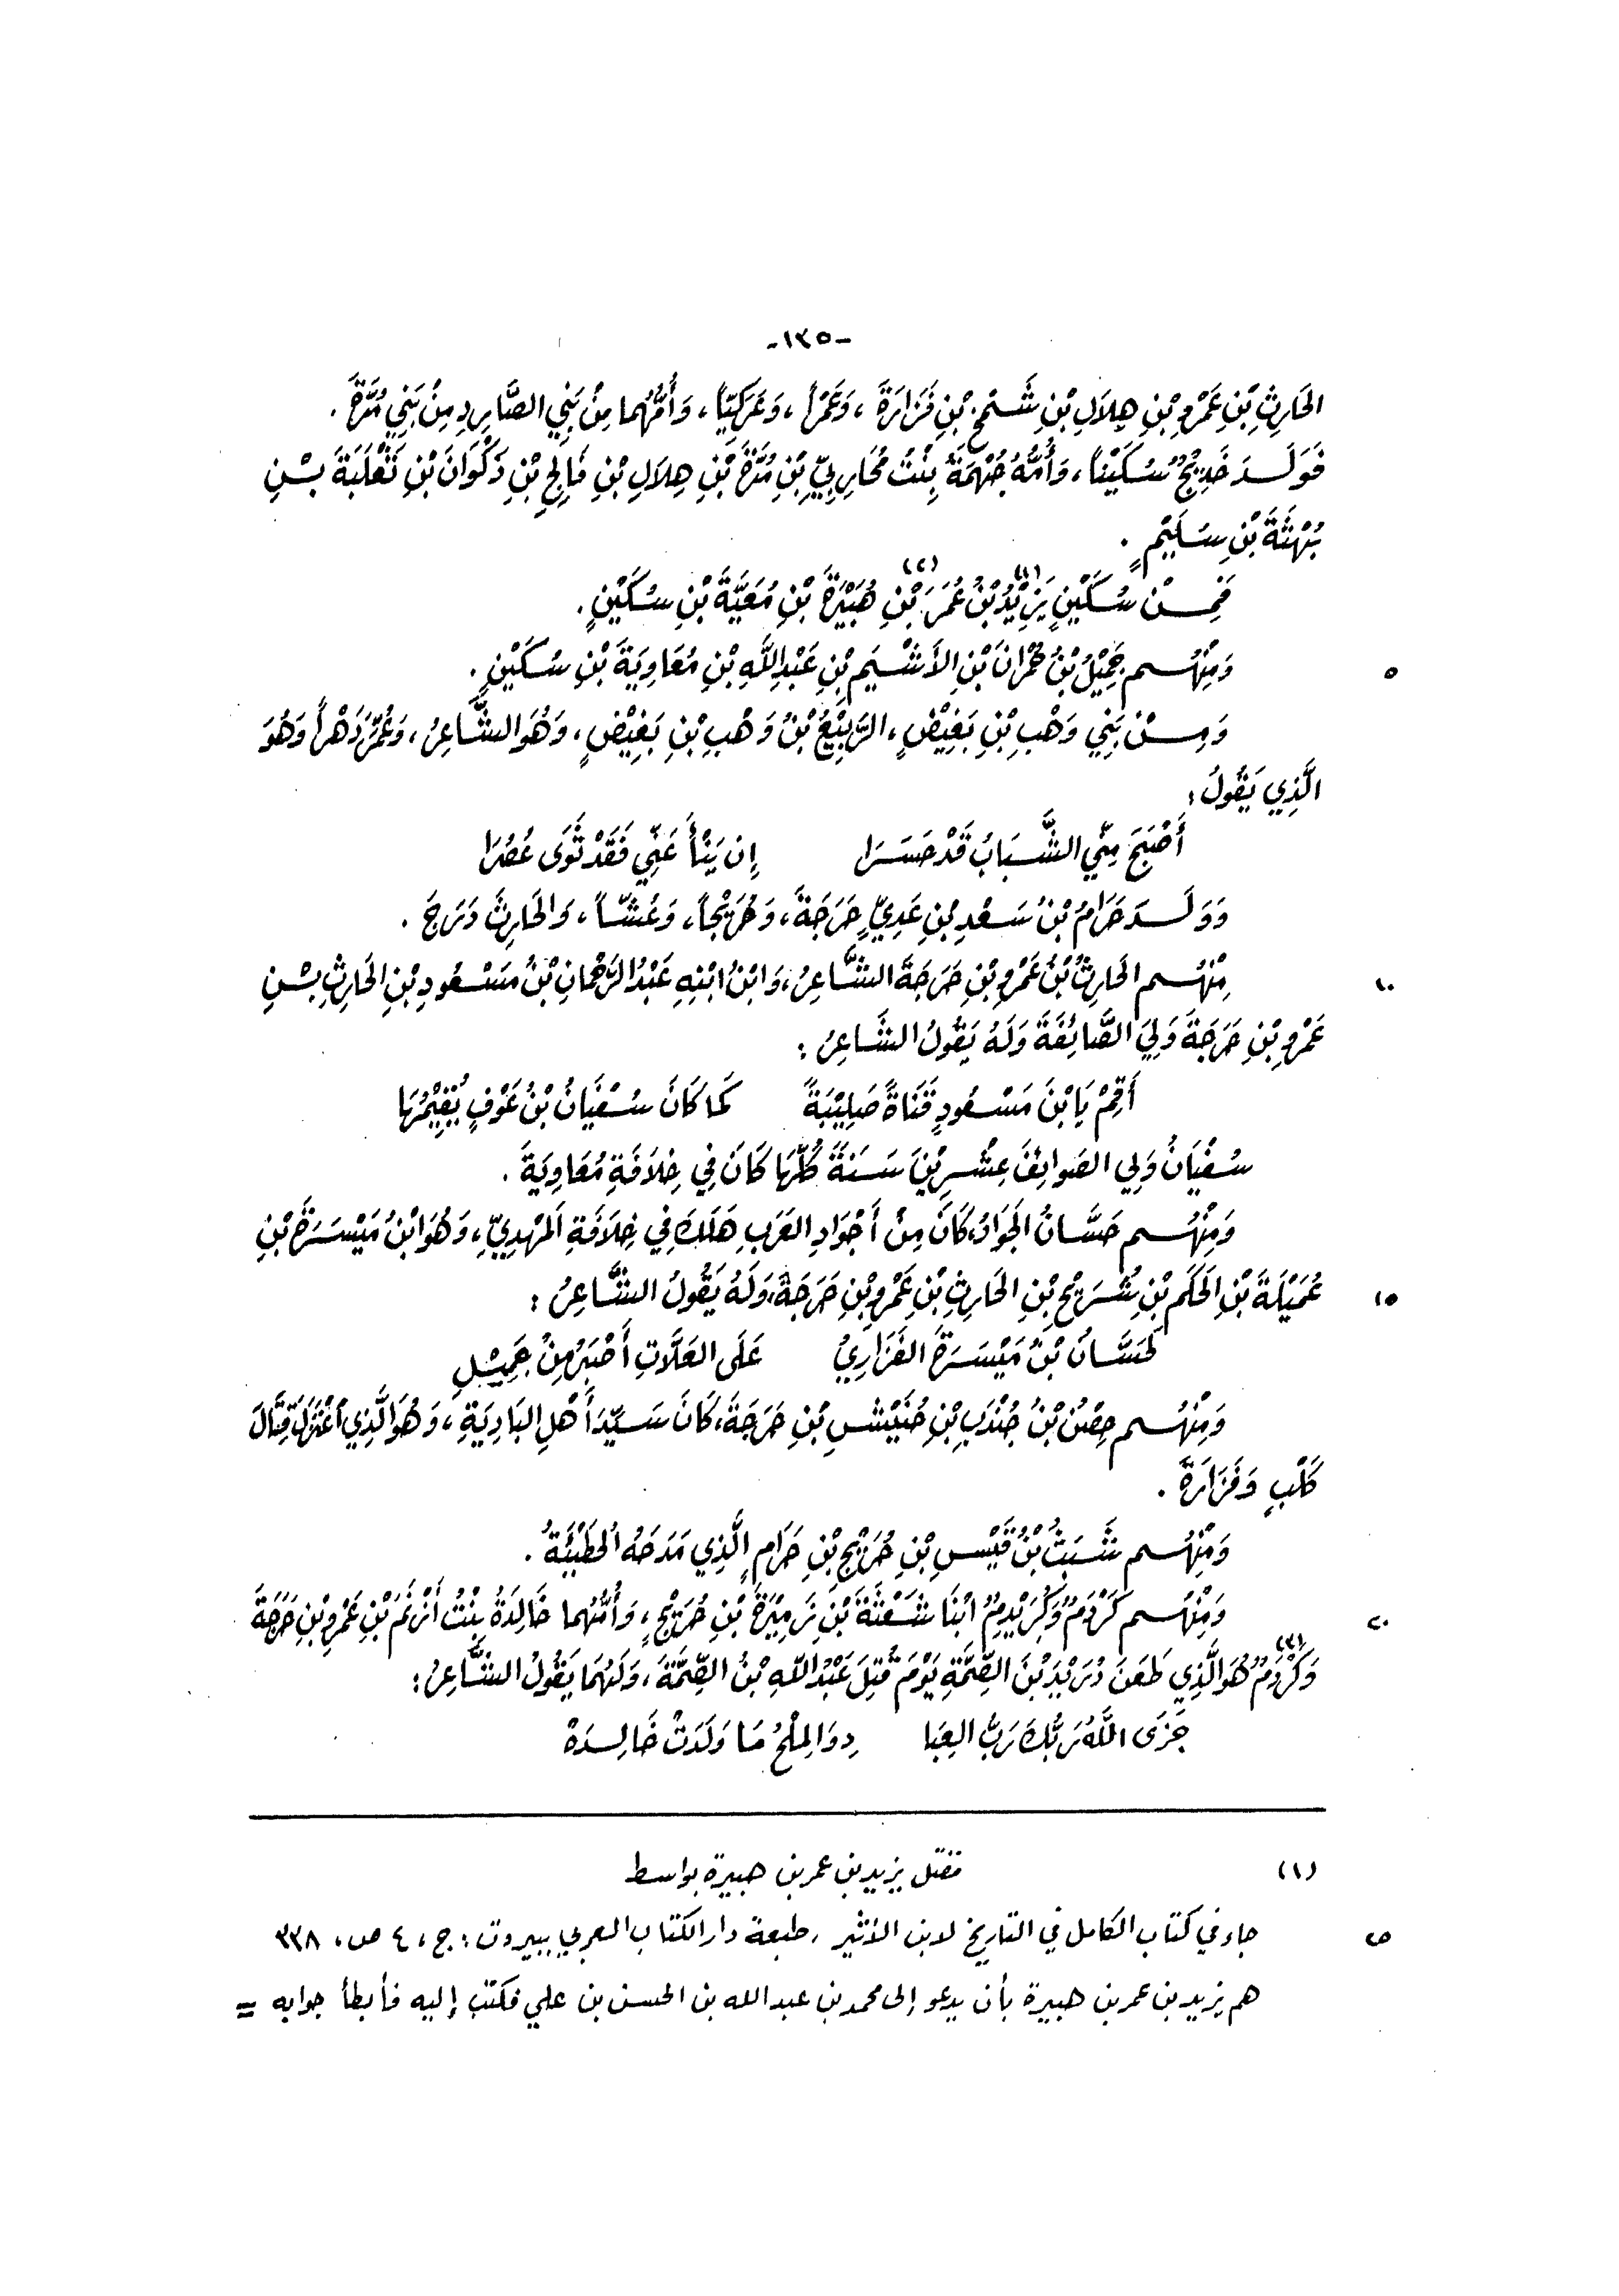 -١٣٥-
الحَارِثِ بْنِ عَمْرِو بْنِ هِلَالِ بْنِ شَمْخِ بْنِ فَزَارَةَ ، وَعَمْراً ، وَعَرَكِيّاً ، وَأُمُّهُما مِنْ بَنِي الصَّارِدِ مِنْ بَنِي مُرَّةَ .
فَوَلَدَ خَدِيْجٌ سُكَيْناً ، وَأُمُّهُ جُهْمَةُ بِنْتُ مُحَارِبِيِّ بْنِ مُرَّةَ بْنِ هِلَالِ بْنِ فَالِجِ بْنِ ذَكْوَانَ بْنِ ثَعْلَبَةَ بْنِ
بُهْثَةَ بْنِ سُلَيْمٍ .
فَمِنْ سُكَيْنٍ يَزِيْدُ(١) بْنُ عُمَرَ بْنِ(٢) هُبَيْرَةَ بْنِ مُعَيَّةَ بْنِ سُكَيْنٍ .
٥ وَمِنْهُم جَمِيْلُ بْنُ حُمْرَانَ بْنِ الأَشْيَمِ بْنِ عَبْدِ اللَّهِ بْنِ مُعَاوِيَةَ بْنِ سُكَيْنٍ .
وَمِنْ بَنِي وَهْبِ بْنِ بَغِيْضٍ ، الرَّبِيْعُ بْنُ وَهْبِ بْنِ بَغِيْضٍ ، وَهُوَ الشَّاعِرُ ، وَعُمِّرَ دَهْراً وَهُوَ
الَّذِي يَقُولُ :
أَصْبَحَ مِنِّي الشَّبَابُ قَدْ حَسَرَا إِن يَنْأَ عَنِّي فَقَدْ ثَوَى عُصُرَا
وَوَلَدَ حَرَامُ بْنُ سَعْدِ بْنِ عَدِيٍّ حَرَجَةَ ، وَحُرَيْجاً ، وَعُشّاً ، وَالحَارِثَ دَرَجَ .
١٠ مِنْهُم الحَارِثُ بْنُ عَمْرِو بْنِ حَرَجَةَ الشَّاعِرُ ، وَابْنُ ابْنِهِ عَبْدُ الرَّحْمَانِ بْنُ مَسْعُودِ بْنِ الحَارِثِ بْنِ
عَمْرِو بْنِ حَرَجَةَ وَلِيَ الصَّائِفَةَ وَلَهُ يَقُولُ الشَّاعِرُ :
أَقِمْ يَا بْنَ مَسْعُودٍ قَنَاةً صَلِيْبَةً كَمَا كَانَ سُفْيَانُ بْنُ عَوْفٍ يُقِيْمُهَا
سُفْيَانُ وَلِي الصَوائِفَ عِشْرِيْنَ سَنَةً كُلَّهَا كَانَ فِي خِلَافَةِ مُعَاوِيَةَ .
وَمِنْهُم حَسَّانُ الجَوَادُ ، كَانَ مِنْ أَجْوَادِ العَرَبِ هَلَكَ فِي خِلَافَةِ المَهْدِيِّ ، وَهُوَ ابْنُ مَيْسَرَةَ بْنِ
١٥ عُمَيْلَةَ بْنِ الحَكَمِ بْنِ شُرَيْحِ بْنِ الحَارِثِ بْنِ عَمْرِو بْنِ حَرَجَةَ ، وَلَهُ يَقُولُ الشَّاعِرُ :
لَحَسَّانُ بْنُ مَيْسَرَةَ الفَزَارِيُّ عَلَى العَلَّاتِ أَصْبَرُ مِنْ جَمِيْلِ
وَمِنْهُم حِصْنُ بْنُ جُنْدَبِ بْنِ خُنَيْشِ بْنِ حَرَجَةَ ، كَانَ سَيِّدَ أَهْلِ البَادِيَةِ ، وَهُوَ الَّذِي اعْتَزَلَ قِتَالَ
كَلْبٍ وَفَزَارَةَ .
وَمِنْهُم شَبَثُ بْنُ قَيْسِ بْنِ حُرَيْجِ بْنِ حَرَامٍ الَّذِي مَدَحَهُ الحُطَيْئَةُ .
٢٠ وَمِنْهُم كَرْدَمٌ وَكُرَيْدِمٌ ابْنَا شَعْثَةَ بْنِ زَمِيْرَةَ بْنِ حُرَيْجٍ ، وَأُمُّهُما خَالِدَةُ بِنْتُ أَرْنَمَ بْنِ عَمْرِو بْنِ حَرَجَةَ
وَكَرْدَمٌ(٣) هُوَ الَّذِي طَعَنَ دُرَيْدَ بْنَ الصِّمَّةِ يَوْمَ قُتِلَ عَبْدُ اللَّهِ بْنُ الصِّمَّةَ ، وَلَهُمَا يَقُولُ الشَّاعِرُ :
جَزَى اللَّهُ رَبُّكَ رَبُّ العِبَا دِ وَالمِلْحُ مَا وَلَدَتْ خَالِدَهْ
(١) مقتل يزيد بن عمر بن هبيرة بواسط
٢٥ جاء في كتاب الكامل في التاريخ لابن الأثير ، طبعة دار الكتاب العربي ببيروت : ج ، ٤ ص ، ٣٣٨
هم يزيد بن عمر بن هبيرة بأن يدعو إلى محمد بن عبد الله بن الحسن بن علي فكتب إليه فأبطأ جوابه =